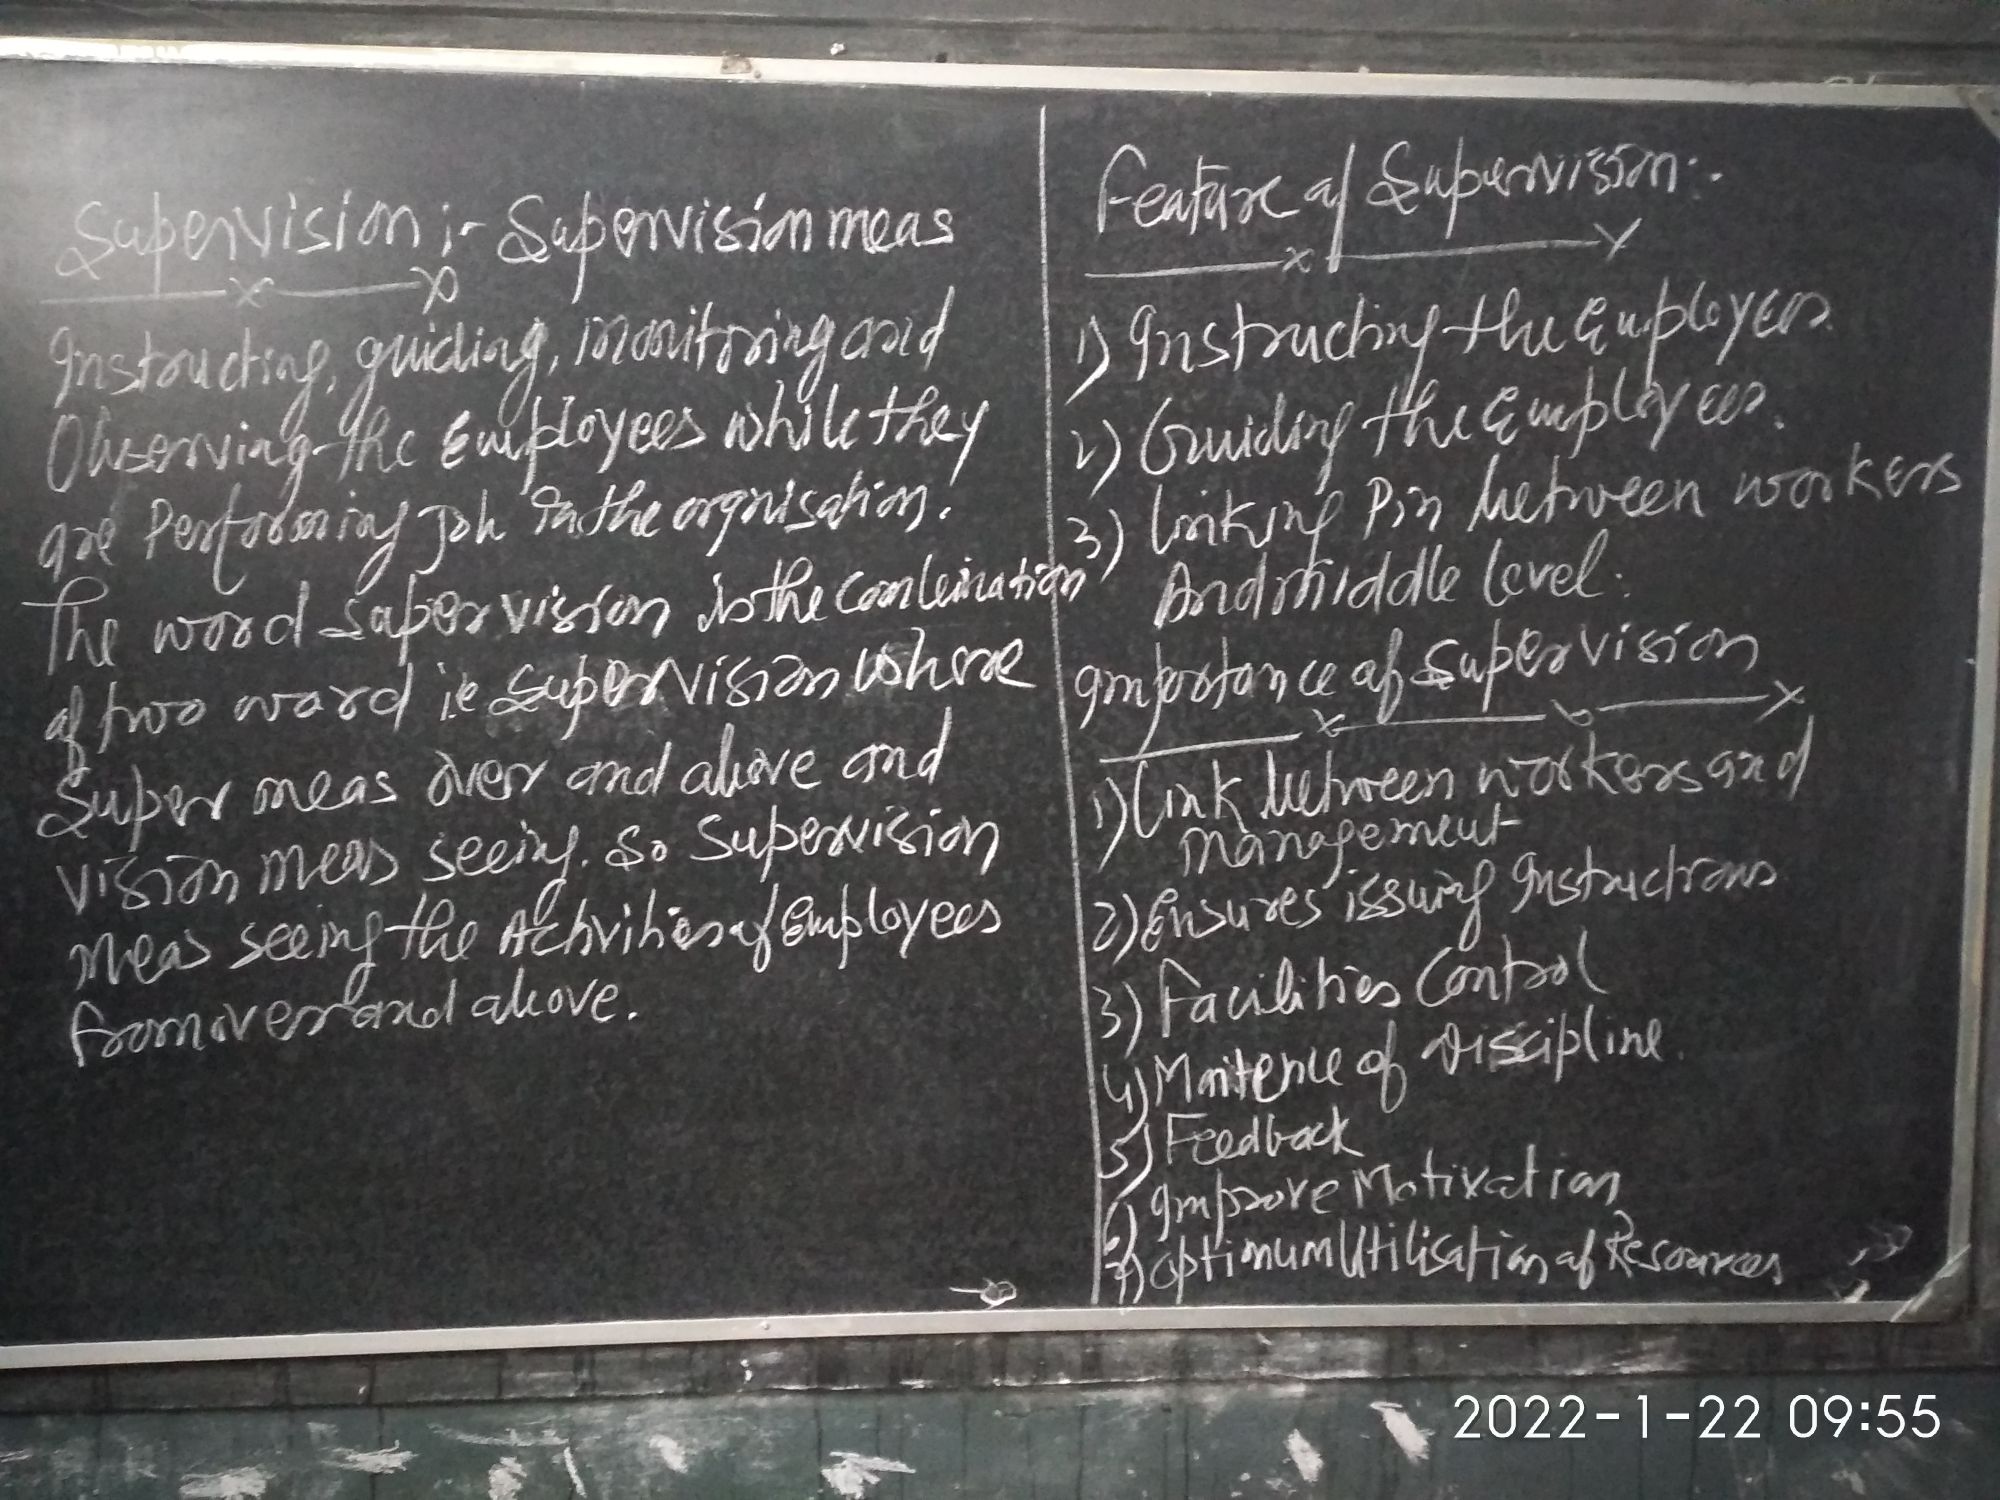 Supervision :- Supervision meas
Instructing, guiding, monitoring and
Observing the Employees while they
are Performing Job In the orgnisation.
The word Supervision is the Combination
of two word i.e Supervision where
Super meas over and above and
vision meas seeing. So Supervision
meas seeing the Activities of Employees
from over and above.
Feature of Supervision :-
1) Instructing the Employees.
2) Guiding the Employees.
3) Linking Pin between workers
And middle level.
Importance of Supervision
1) Link between workers and
Management
2) Ensures issuing Instructions
3) Facilities Control
4) Maitence of Discipline.
5) Feedback
6) Improve Motivation
7) Optimum Utilisation of Resources
2022-1-22 09:55